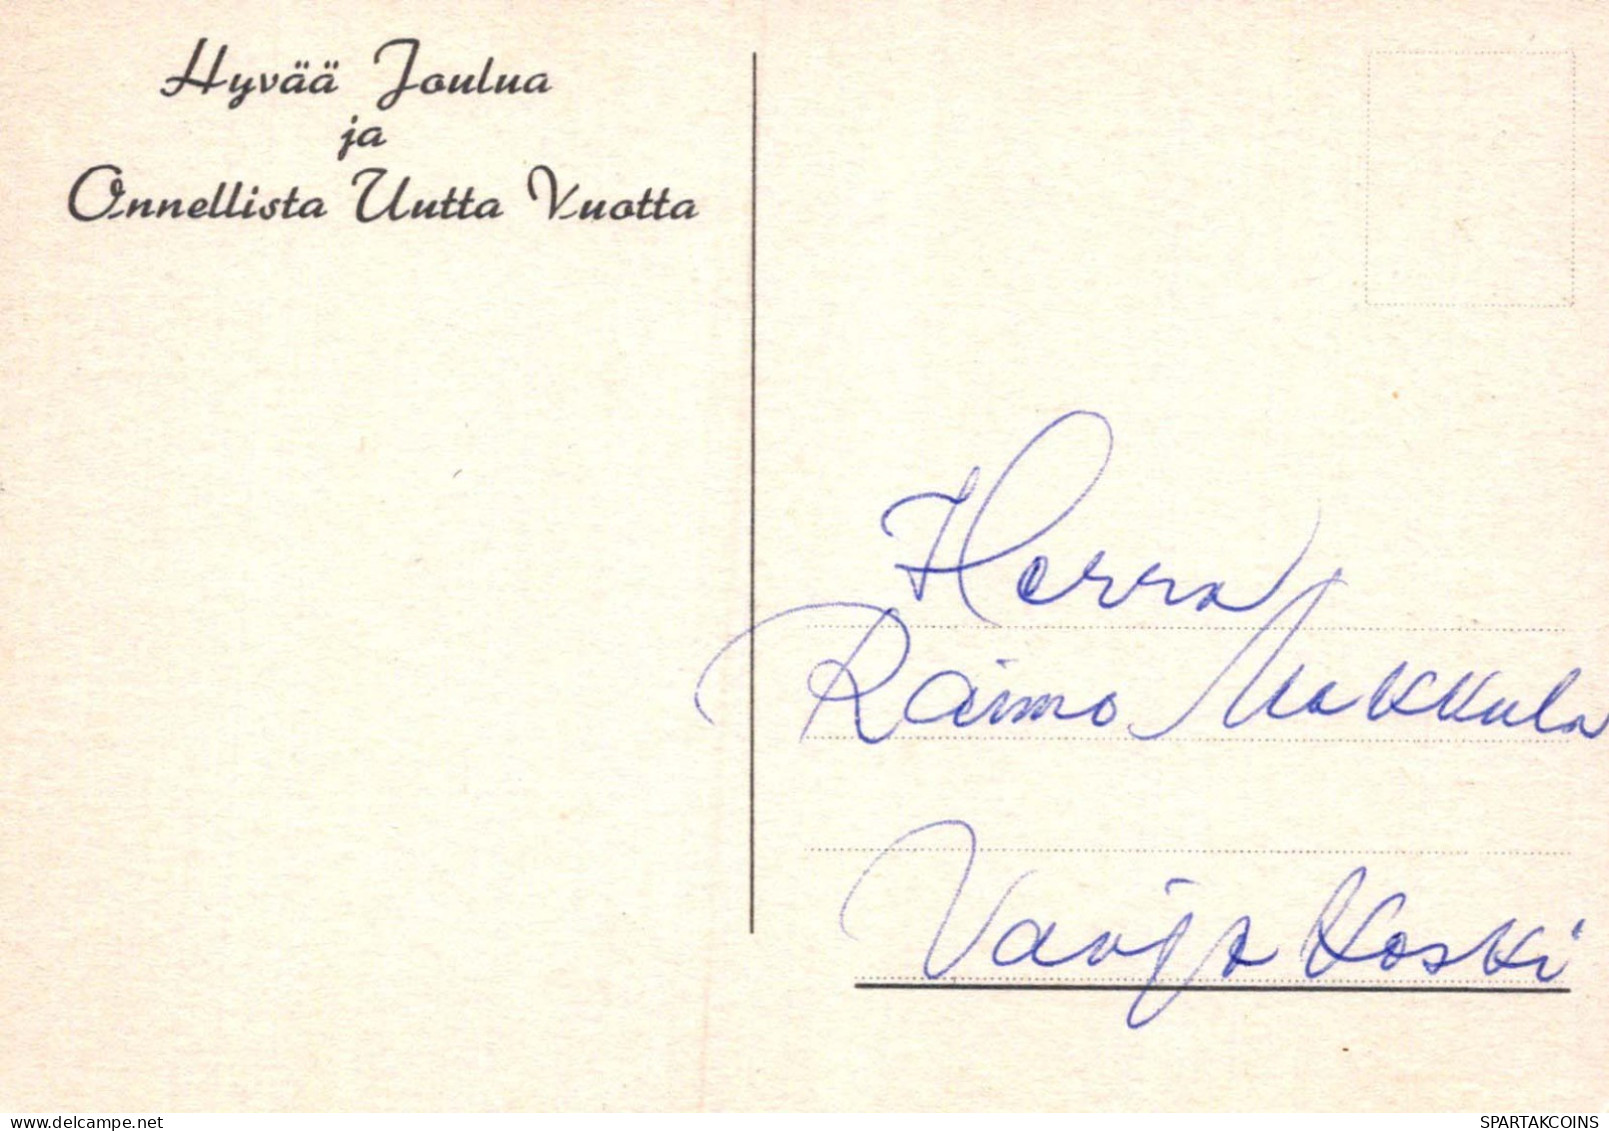 Hyvää Joulua
ja
Onnellista Uutta Vuotta
Herra
Raimo Makkula
Vaajakoski
delcampe.net
SPARTAKCOINS